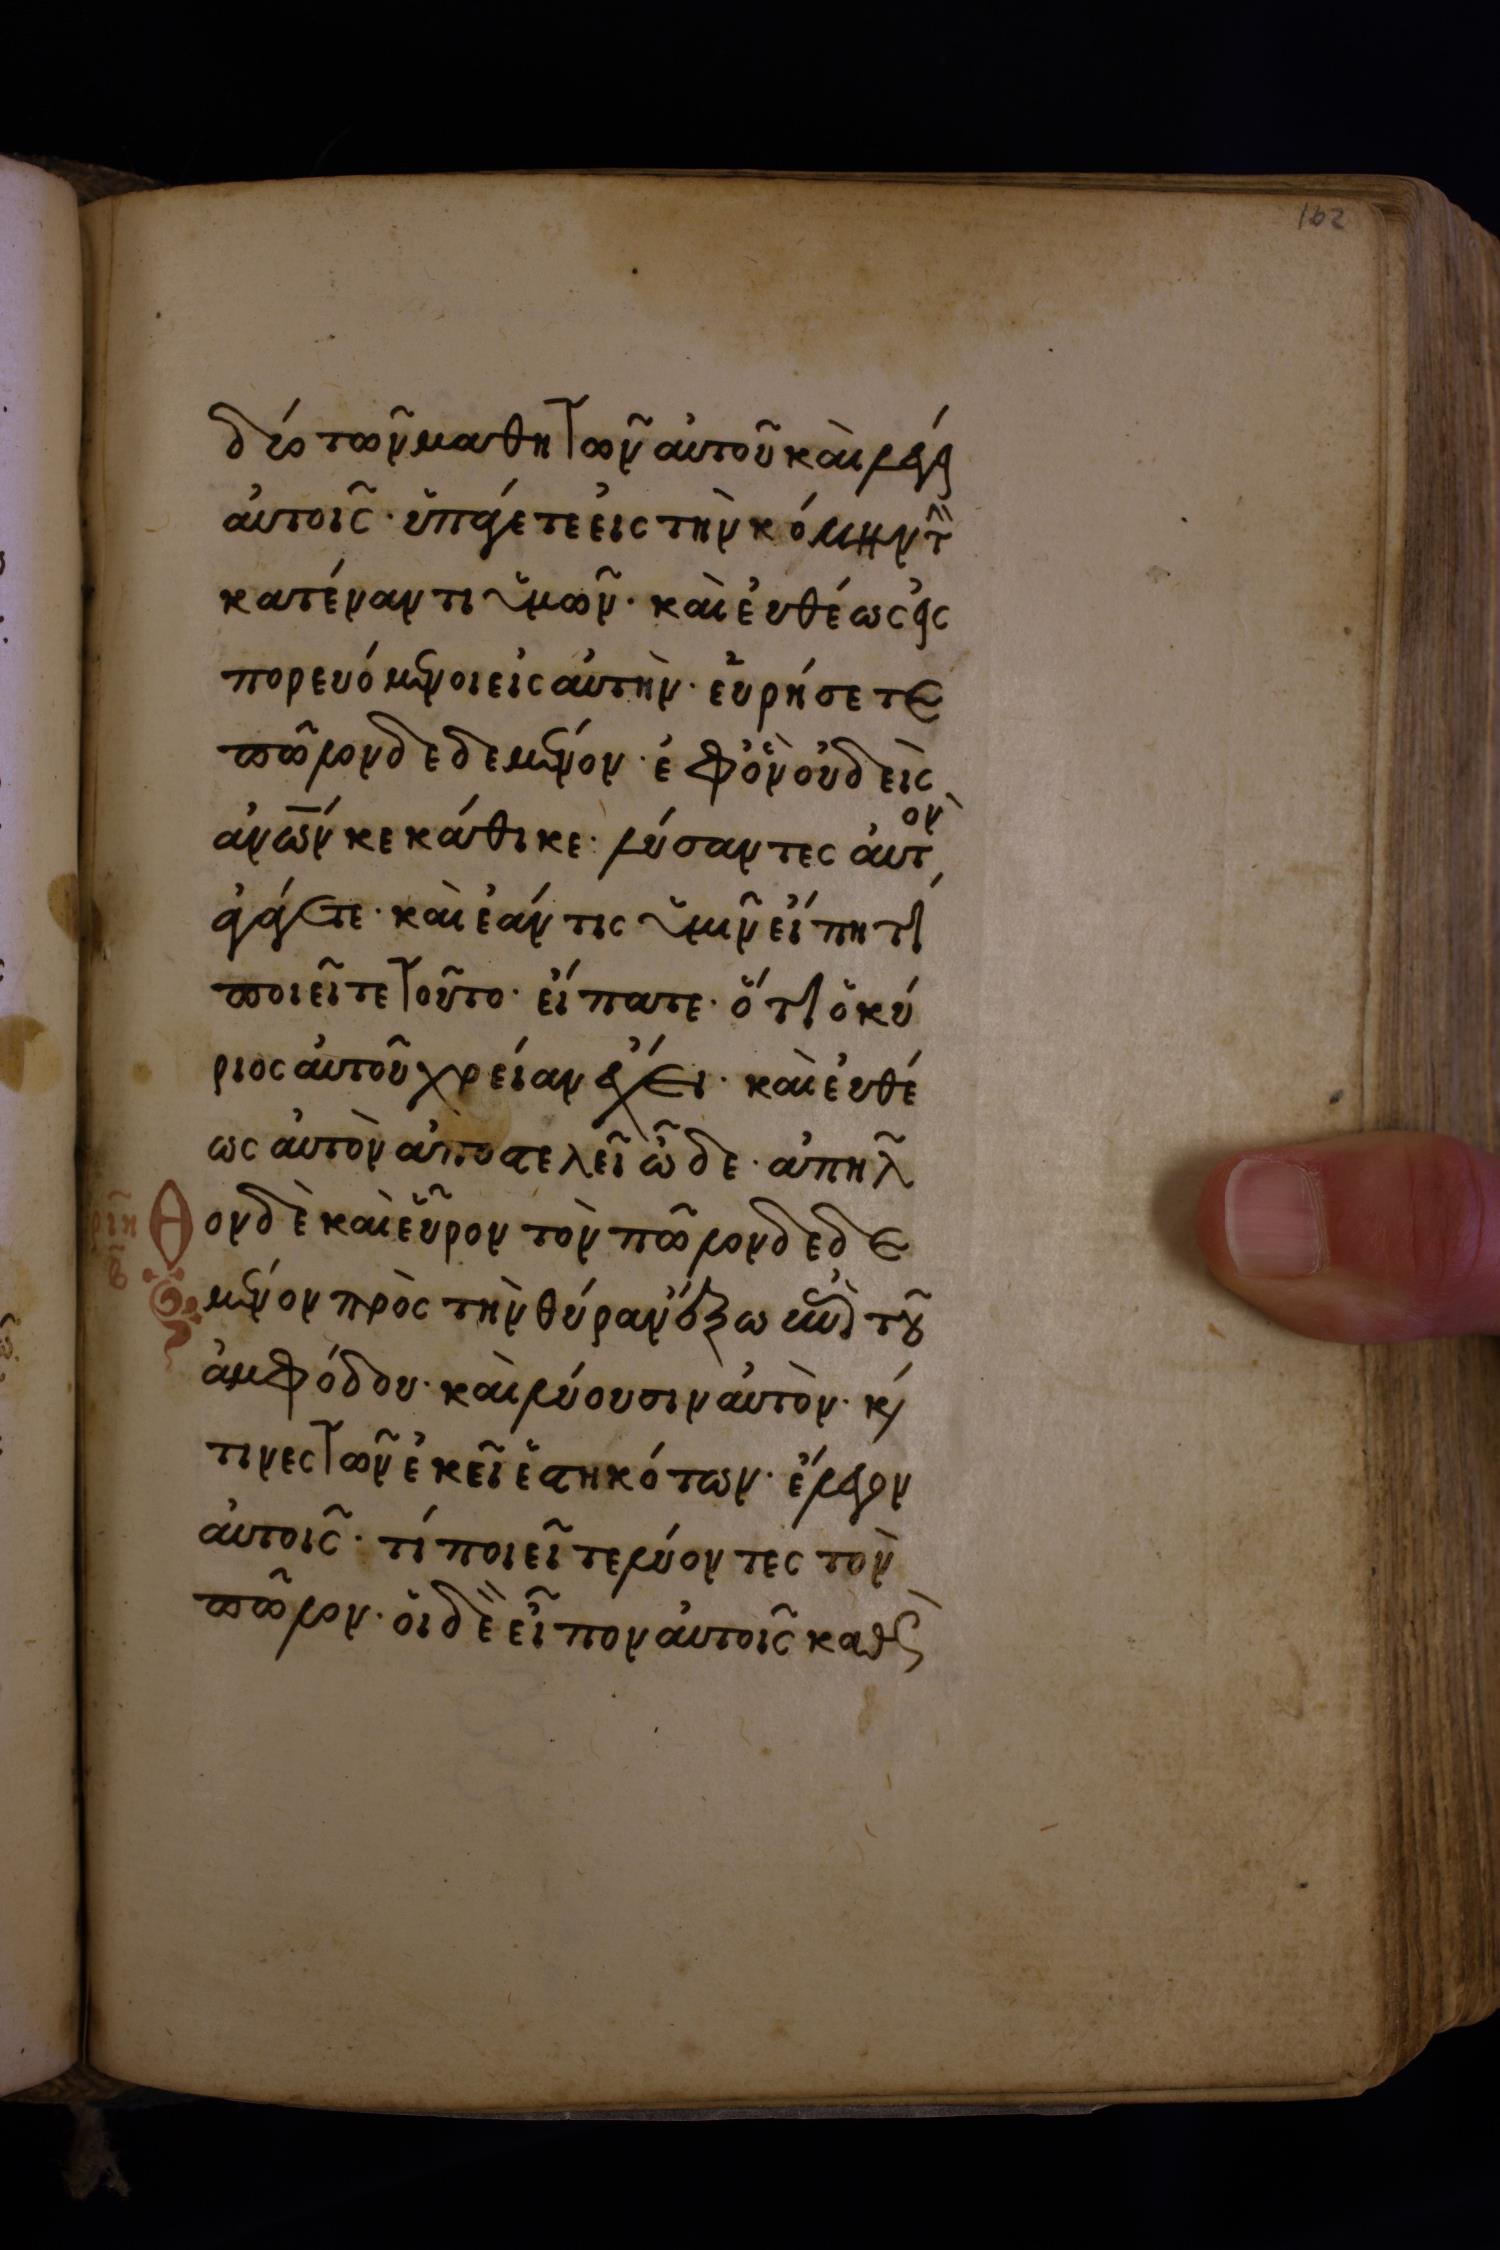 162
δύο τῶν μαθητῶν αὐτοῦ καὶ λέγει
αὐτοῖς· ὑπάγετε εἰς τὴν κόμην τ̏
κατέναντι ὑμῶν· καὶ εὐθέως εἰσ
πορευόμενοι εἰς αὐτὴν· εὑρήσετε
πῶλον δεδεμένον· ἐφ' ὃν οὐδεὶς
ἀν̅ω̅ν κεκάθικε· λύσαντες αὐτὸν
ἀγάγετε· καὶ ἐάν τις ὑμῖν εἴπη τί
ποιεῖτε τοῦτο· εἴπατε· ὅτι ὁ κύ
ριος αὐτοῦ χρείαν ἔχει· καὶ εὐθέ
ως αὐτὸν ἀποστελεῖ ὧδε· ἀπῆλ
Θον δὲ καὶ εὗρον τὸν πῶλον δεδε
μένον πρὸς τὴν θύραν ἔξω ἐπὶ τοῦ
ἀμφόδου· καὶ λύουσιν αὐτὸν· κ
τινες τῶν ἐκεῖ ἑστηκότων· ἔλεγον
αὐτοῖς· τί ποιεῖτε λύοντες τὸν
πῶλον· οἱ δὲ εἶπον αὐτοῖς καθὼς